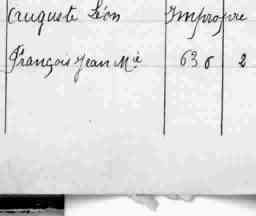 Auguste Léon Impropre
François Jean Mie 636 2